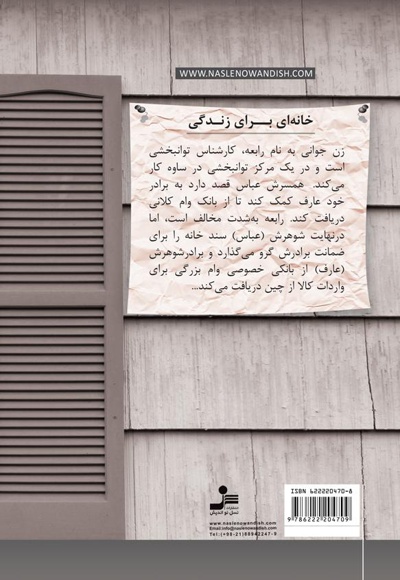 WWW.NASLENOWANDISH.COM
خانه‌ای بـــرای زنـدگی
زن جوانی به نام رابعه، کارشناس توانبخشی
است و در یک مرکز توانبخشی در ساوه کار
می‌کند. همسرش عباس قصد دارد به برادر
خود عارف کمک کند تا از بانک وام کلانی
دریافت کند. رابعه به‌شدت مخالف است، اما
درنهایت شوهرش (عباس) سند خانه را برای
ضمانت برادرش گرو می‌گذارد و برادرشوهرش
(عارف) از بانکی خصوصی وام بزرگی برای
واردات کالا از چین دریافت می‌کند...
ISBN 622220470-8
9 786222 204709
انتشارات
نسل نو اندیش
www.naslenowandish.com
Email:info@naslenowandish.com
Tel:(+98-21)88942247-9